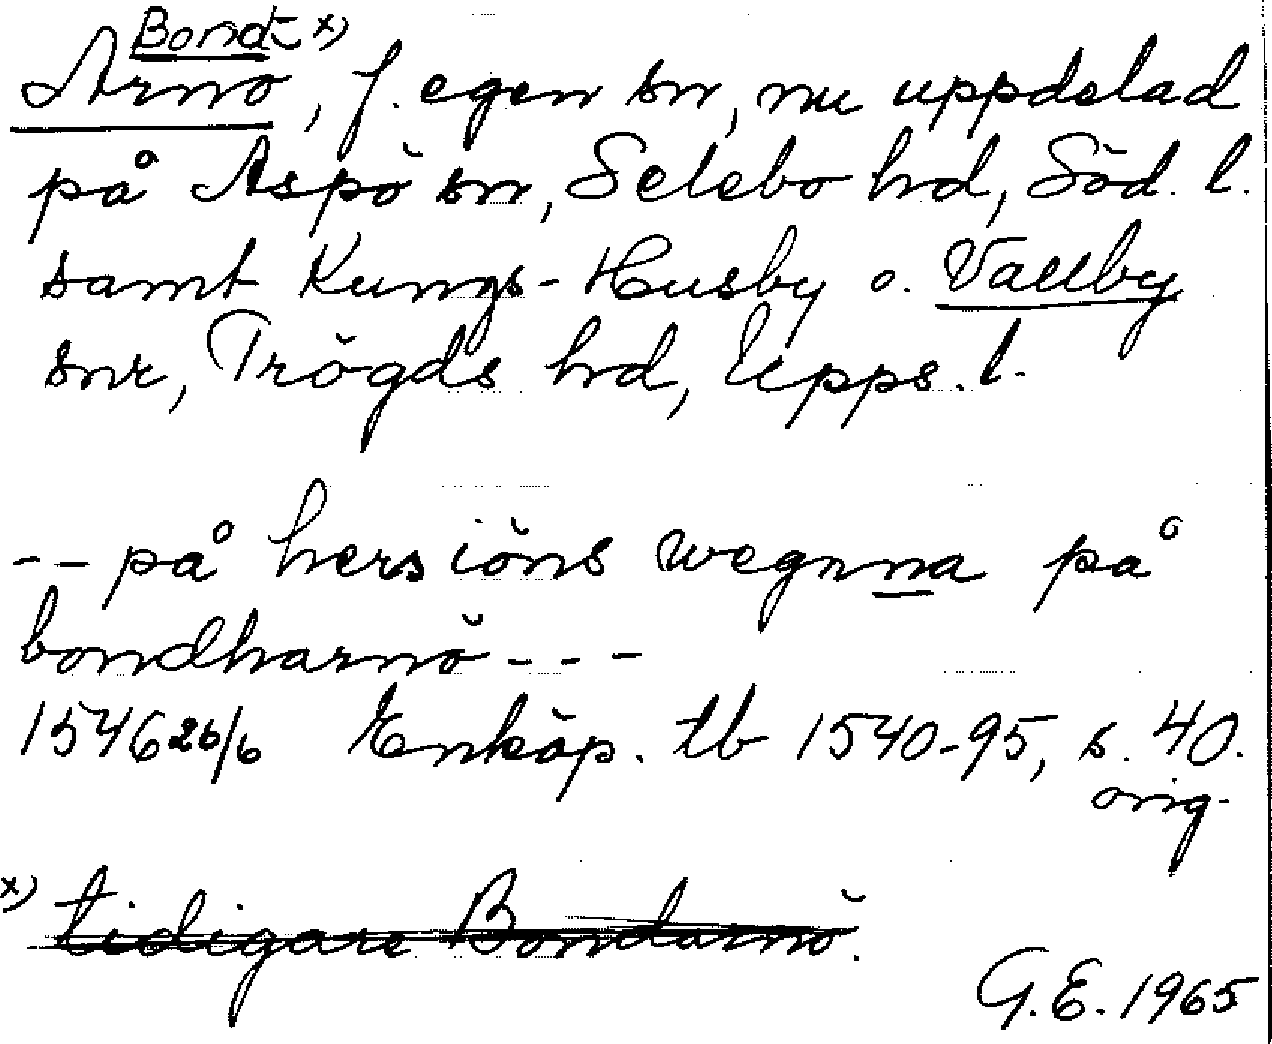 Bond- x)
Arnö, f. egen sn, nu uppdelad
på Aspö sn, Selebo hd, Söd. l.
samt Kungs-Husby o. Vallby
snr, Trögds hd, Upps. l.
-- på hersiöns wegnna på
bondharnö ---
1546 26/6 Enköp. tb 1540-95, s. 40.
orig.
x) tidigare Bondarnö.
G.E. 1965